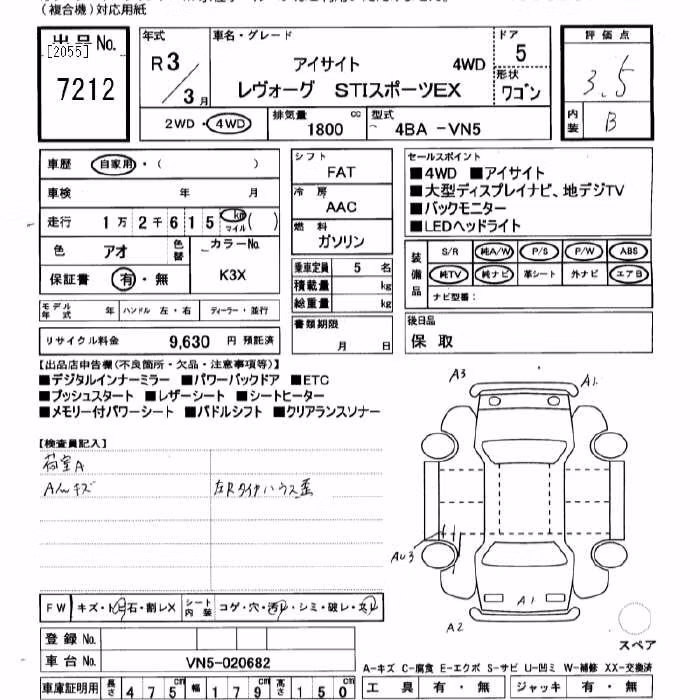 (複合機)対応用紙
出品 No.
[2055]
7212
年式
R3/3月
車名・グレード
アイサイト 4WD
レヴォーグ STIスポーツEX
ドア
5
形状
ワゴン
評価点
3.5
内装
B
2WD・4WD
排気量
1800 cc
型式
4BA -VN5
車歴 自家用・( )
車検 年 月
走行 1万2千615 km マイル ( )
色 アオ 色替 カラーNo.
K3X
保証書 有・無
モデル年式 年 ハンドル 左・右 ディーラー・並行
リサイクル料金 9,630 円 預託済
シフト
FAT
冷房
AAC
燃料
ガソリン
乗車定員 5 名
積載量 kg
総重量 kg
書類期限
月 日
セールスポイント
■4WD ■アイサイト
■大型ディスプレイナビ、地デジTV
■バックモニター
■LEDヘッドライト
装備品
S/R 純A/W P/S P/W ABS
純TV 純ナビ 革シート 外ナビ エアB
ナビ型番:
後日品
保 取
【出品店申告欄(不良箇所・欠品・注意事項等)】
■デジタルインナーミラー ■パワーバックドア ■ETC
■プッシュスタート ■レザーシート ■シートヒーター
■メモリー付パワーシート ■パドルシフト ■クリアランスソナー
【検査員記入】
荷室A
Aんキズ 左Rタイヤハウス歪
A3 A1
AU3
A1
A2
スペア
FW キズ・ト石・割レX シート内装 コゲ・穴・汚レ・シミ・破レ・スレ
登録 No.
車台 No. VN5-020682
車庫証明用 長さ 475 cm 幅 179 cm 高さ 150 cm
A-キズ C-腐食 E-エクボ S-サビ U-凹ミ W-補修 XX-交換済
工具 有・無 ジャッキ 有・無